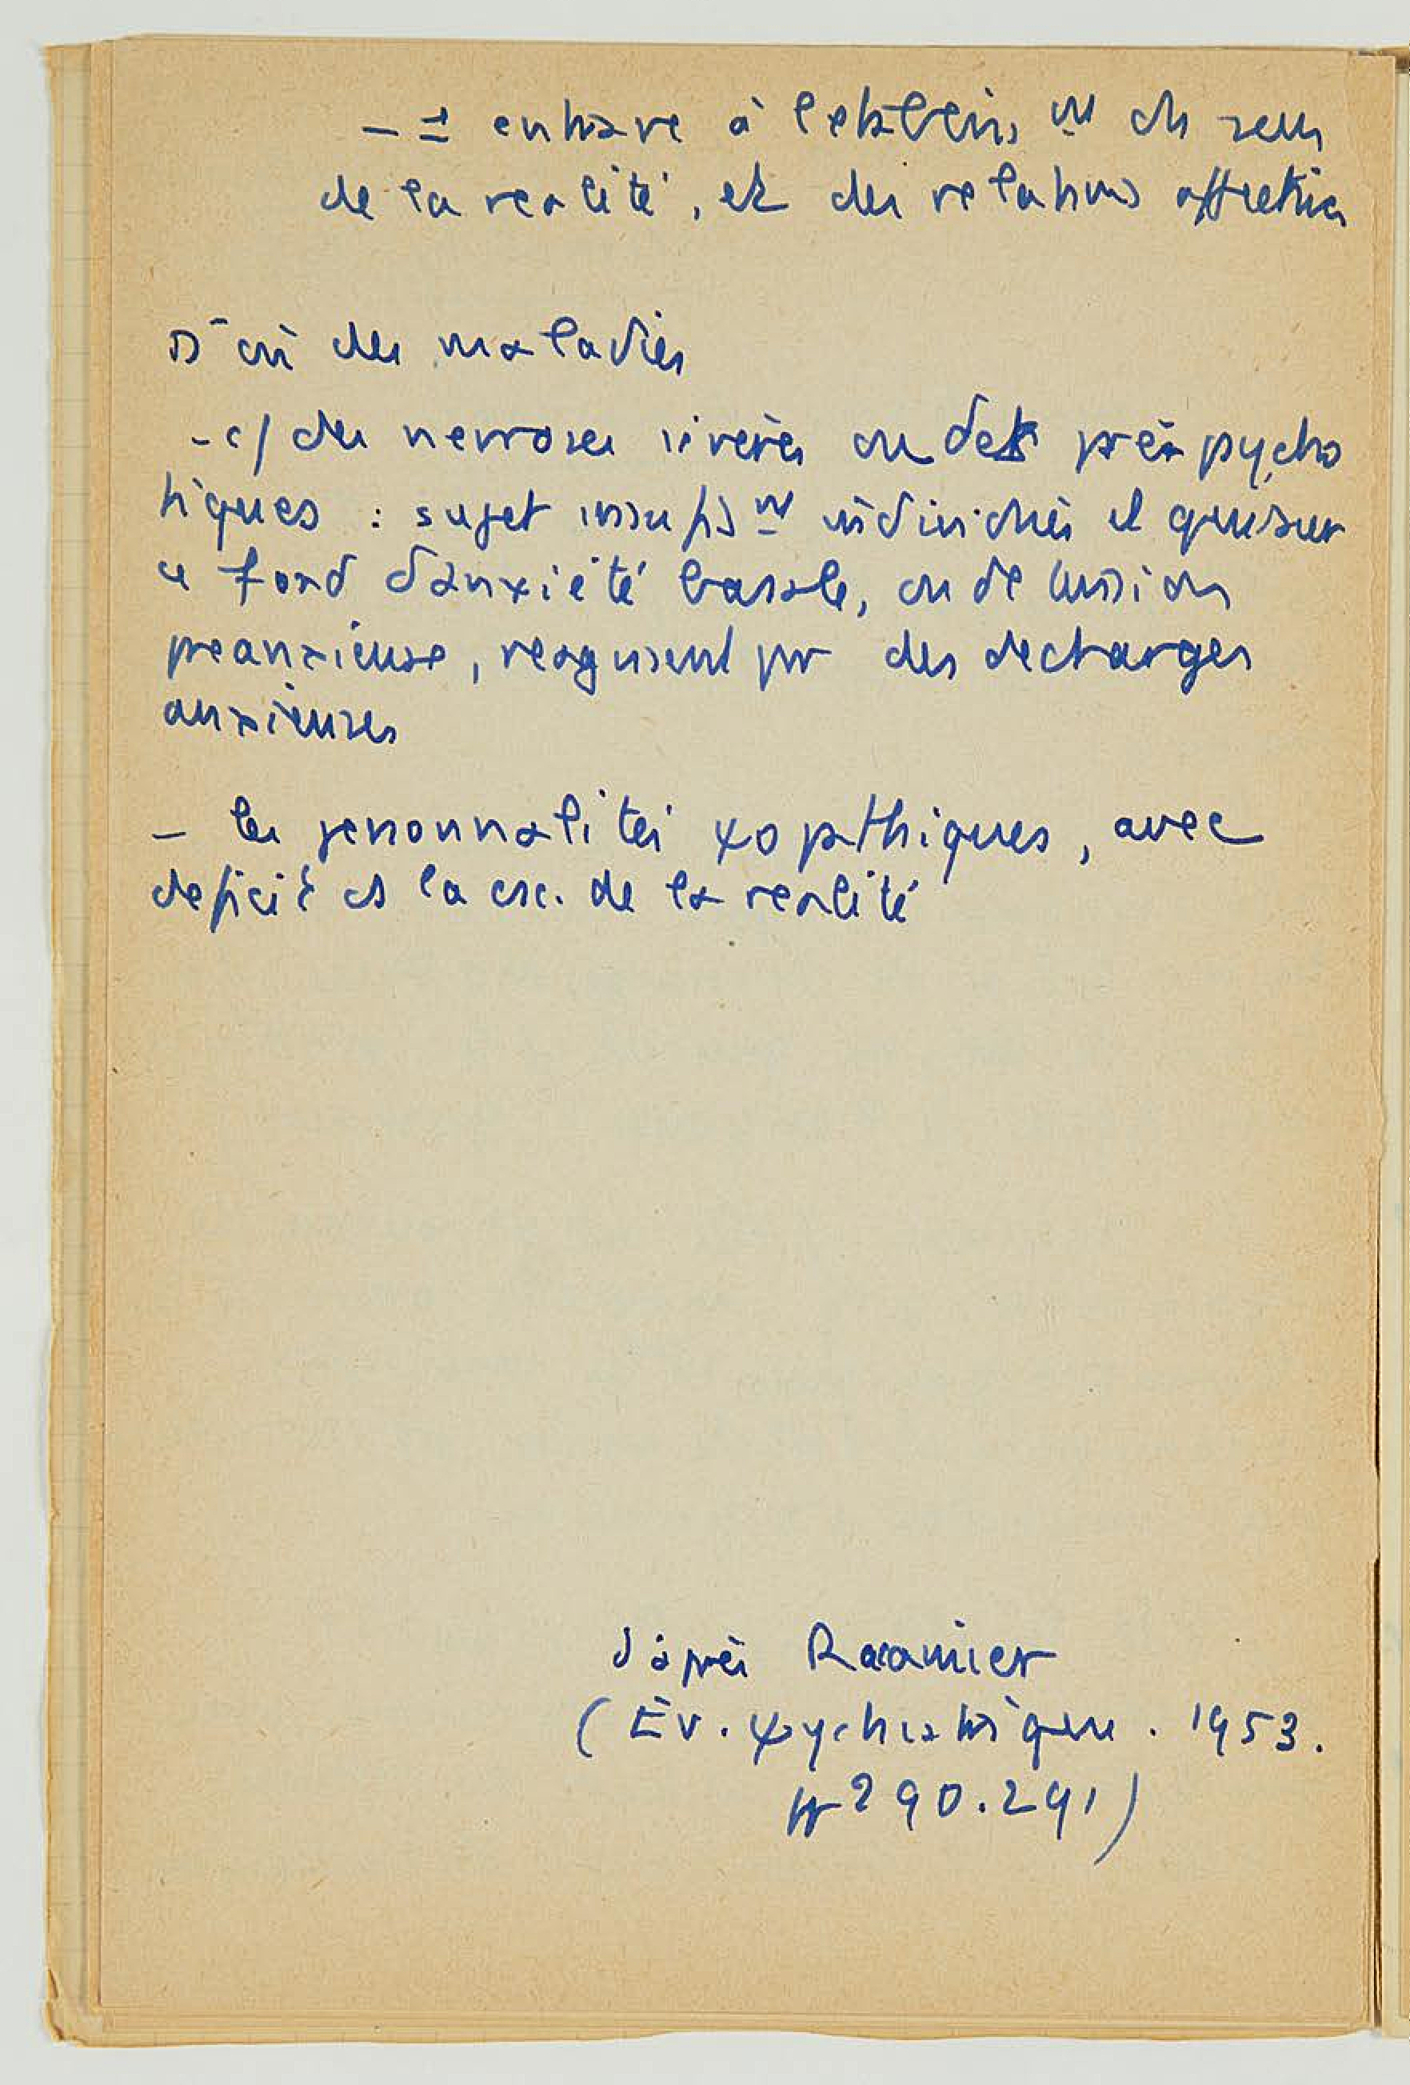 - = entrave à l'etabliss nt du sens
de la realité, et des relations affectives
D'où des maladies
- c/ des nevroses sévères ou des prépsycho
tiques : sujet insuffis nt individués et qui sur
ce fond d'anxiété basale, ou de tension
preanxieuse, reagissent par des decharges
anxieuses
- les personnalités ψopathiques, avec
deficit ds la csc. de la realité
d'après Racamier
(Ev. ψychiatrique. 1953.
pp 290.291)